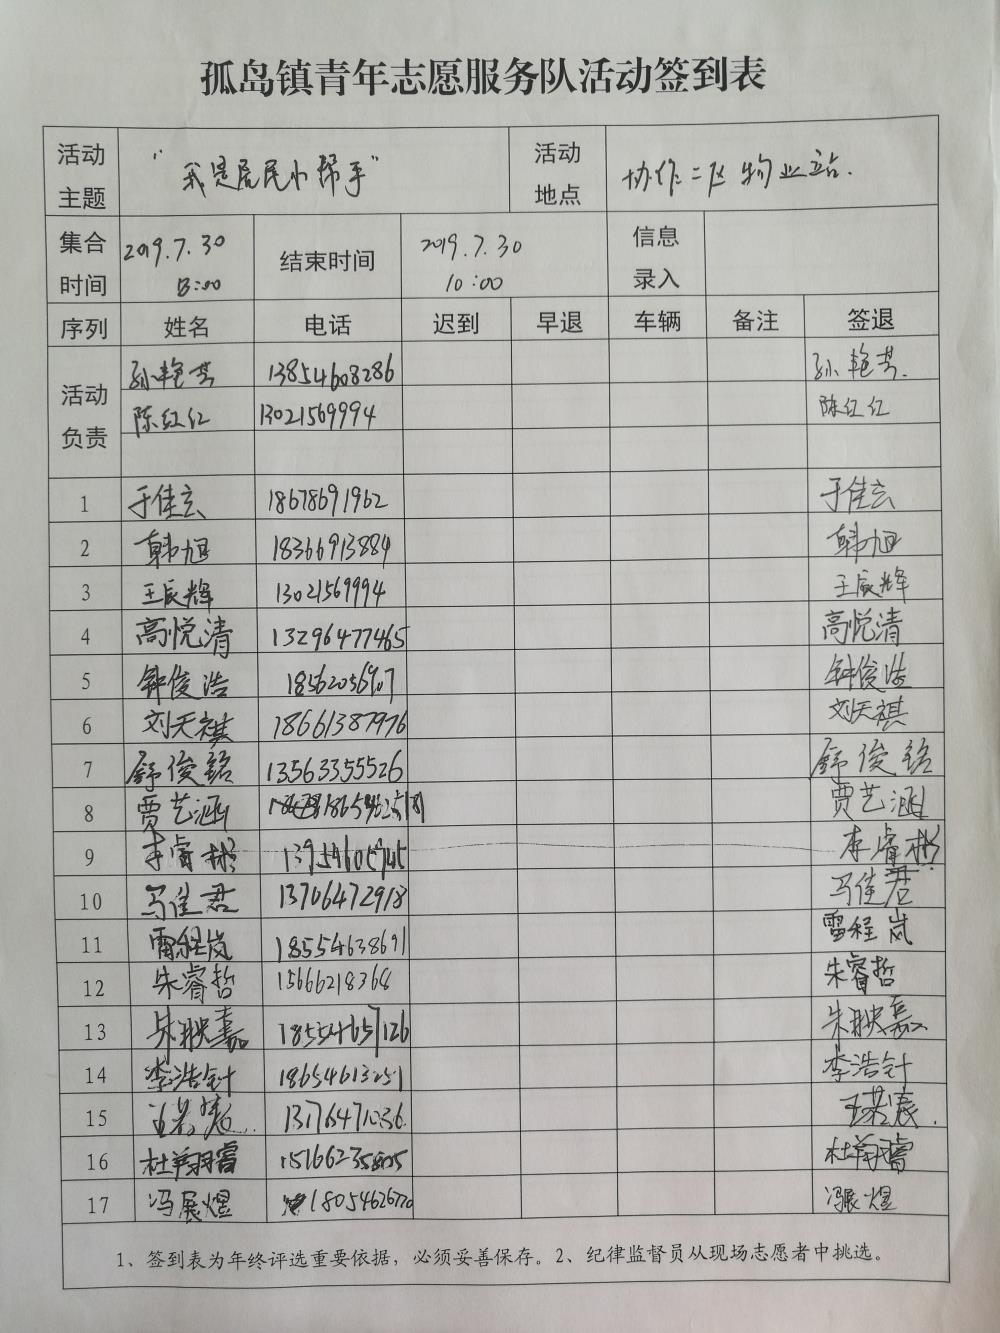 孤岛镇青年志愿服务队活动签到表
活动主题 "我是居民小帮手" 活动地点 协作二区物业站.
集合时间 2019.7.30 8:00 结束时间 2019.7.30 10:00 信息录入
序列 姓名 电话 迟到 早退 车辆 备注 签退
活动负责 孙艳芳 13854608286 孙艳芳.
陈红红 13021569994 陈红红
1 于佳玄 18678691962 于佳玄
2 韩旭 18366913884 韩旭
3 王辰辉 13021569994 王辰辉
4 高悦清 13296477465 高悦清
5 钟俊浩 钟俊浩
6 刘天祺 18661387976 刘天祺
7 舒俊铭 13563355526 舒俊铭
8 贾艺涵 贾艺涵
9 李睿彬 李睿彬
10 冯佳君 13706472918 冯佳君
11 雷程岚 18554638691 雷程岚
12 朱睿哲 15666218364 朱睿哲
13 朱映嘉 18554657126 朱映嘉
14 李浩针 18654613251 李浩针
15 王若
16 杜翔睿 杜翔睿
17 冯展煜 18054626770 冯展煜
1、签到表为年终评选重要依据，必须妥善保存。2、纪律监督员从现场志愿者中挑选。